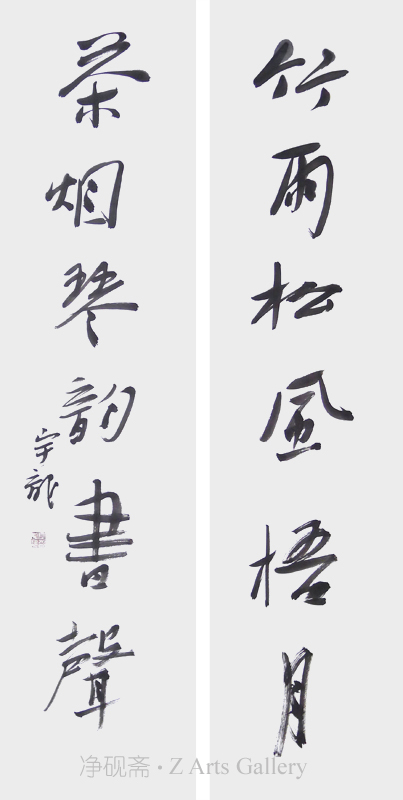 竹雨松風梧月
茶烟琴韵書聲
宇龍
净砚斋·Z Arts Gallery